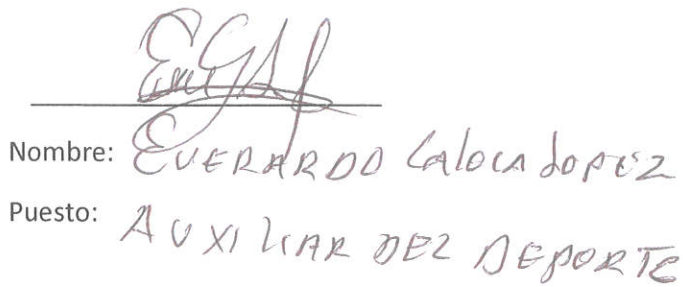 Nombre: EVERARDO Caloca LopEZ
Puesto: AUXILIAR DEL DEPORTE